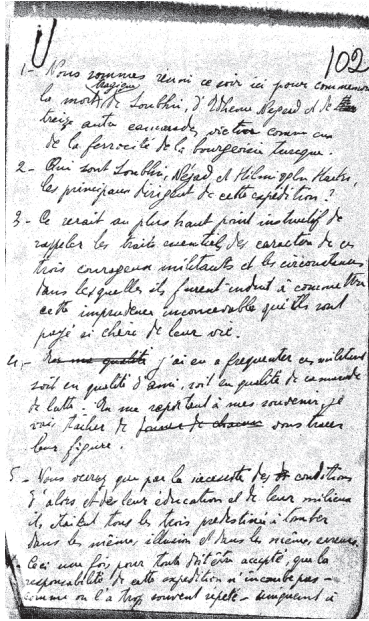 102
1.- Nous sommes réuni ce soir ici pour commemorer
tragique
la mort de Soubhi, d'Edhem Nejad et de
treize autre camarades, victime comme eux
de la ferocité de la bourgeoisie turque.
2.- Qui sont Soubhi, Néjad et Hilmi oglu Hakki,
les principaux dirigent de cette expédition?
3.- Ce serait au plus haut point instructif de
rappeler les traits essentiels des caractere de ces
trois courageux militants et les circonstances
dans lesquelles ils furent induit à commettre
cette imprudence inconcevable qu'ils ont
payé si chère de leur vie.
4.- En ma qualité j'ai eu a frequenter ces militants
soit en qualité d'ami, soit en qualité de camarade
de lutte. En me reportant à mes souvenir, je
vais tacher de vous tracer
leur figure.
5.- Vous verrez que par la necessité des conditions
d'alors et de leur éducation et de leur milieu
ils étaient tous les trois predestinés à tomber
dans les mêmes illusion et dans les mêmes erreurs.
Ceci une fois pour toute doit être accepté, que la
responsabilité de cette expedition n'incombe pas -
comme on l'a trop souvent répété - uniquement à